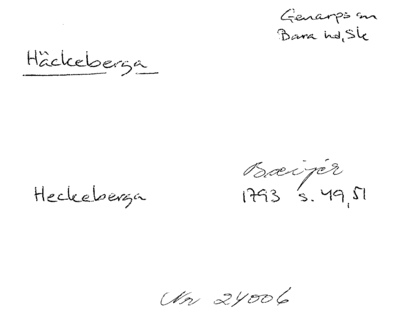 Genarps sn
Bara hd, Sk
Häckeberga
Bæijér
Heckeberga 1793 s. 49, 51
Nr 24006